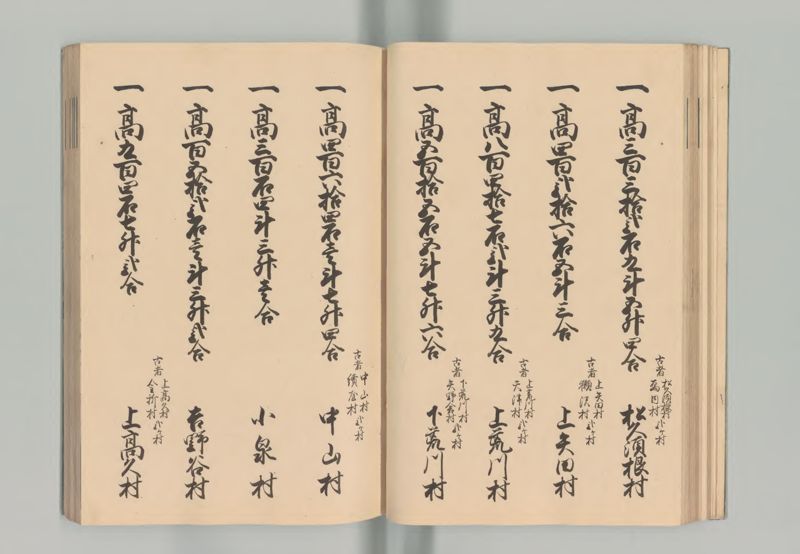 一 高三百三拾弐石九斗五升四合
古者 松久須根村
弐ヶ村
松久須根村
一 高四百弐拾六石五斗三合
古者 上矢田村
瀬沢村 弐ヶ村
上矢田村
一 高八百四拾七石弐斗三升九合
古者 上荒川村
弐ヶ村
上荒川村
一 高五百拾五石五斗七升六合
古者 下荒川村
矢野倉村 弐ヶ村
下荒川村
一 高四百六拾四石壱斗七升四合
古者 中山村
弐ヶ村
中山村
一 高三百石四斗三升壱合
小泉村
一 高百五拾弐石壱斗三升弐合
吉野谷村
一 高九百四石七升弐合
古者 上高久村
弐ヶ村
上高久村